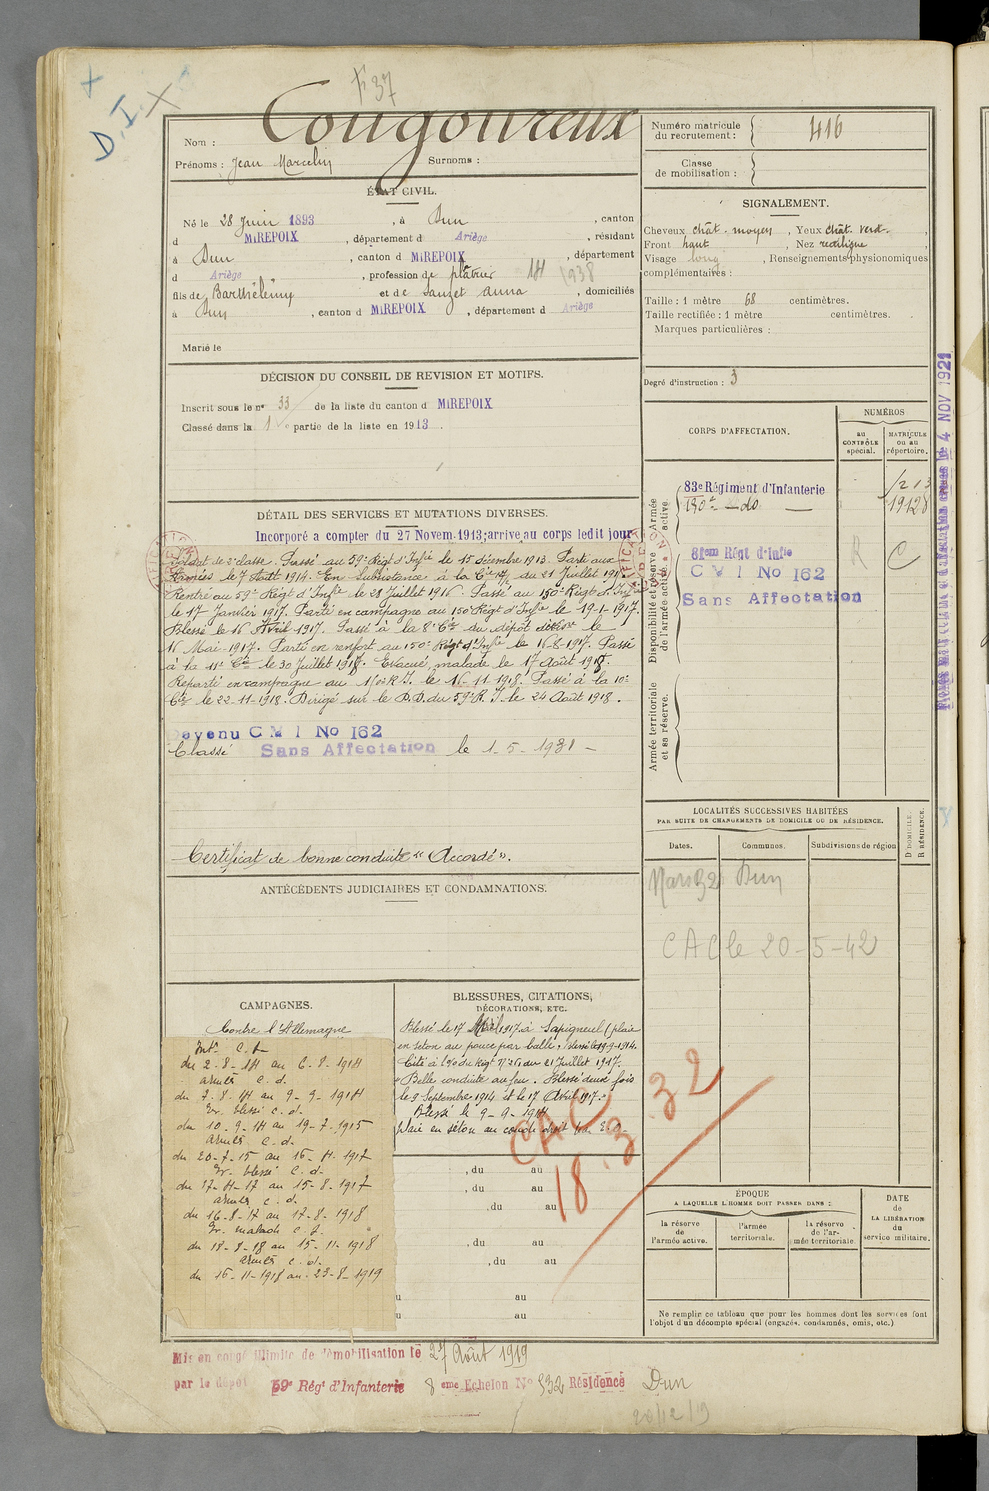 F 37
D.I. X
Nom : Cougoureux
Prénoms : Jean Marcelin Surnoms :
ÉTAT CIVIL.
Né le 28 Juin 1893, à Dun, canton
d MIREPOIX, département d Ariège, résidant
à Dun, canton d MIREPOIX, département
d Ariège, profession de plâtrier 1938
fils de Barthélémy et de Sauzet Anna, domiciliés
à Dun, canton d MIREPOIX, département d Ariège
Marié le
DÉCISION DU CONSEIL DE REVISION ET MOTIFS.
Inscrit sous le nº 33 de la liste du canton d MIREPOIX
Classé dans la 1 partie de la liste en 1913.
DÉTAIL DES SERVICES ET MUTATIONS DIVERSES.
Incorporé a compter du 27 Novem. 1913; arrivé au corps ledit jour
Soldat de 2e classe. Passé au 59e Régt d'Infie le 15 décembre 1913. Parti aux
Armées le 7 Août 1914. En Subsistance à la Cie du 21 Juillet 191
Rentré au 59e Régt d'Infie le 28 Juillet 1916. Passé au 150e Régt d'Infie
le 17 Janvier 1917. Parti en campagne au 150e Régt d'Infie le 19-1-1917.
Blessé le 16 Avril 1917. Passé à la 8e Cie du dépôt le
16 Mai 1917. Parti en renfort au 150e Régt d'Infie le 16-8-1917. Passé
à la 11e Cie le 30 Juillet 1918. Evacué, malade le 17 Août 1918.
Reparti en campagne au 150e R.I. le 16-11-1918. Passé à la 10e
Cie le 22-11-1918. Dirigé sur le D.D. du 59e R.I. le 24 Août 1918.
Devenu C M I No 162
Classé Sans Affectation le 1-5-1931 –
Certificat de bonne conduite « Accordé ».
ANTÉCÉDENTS JUDICIAIRES ET CONDAMNATIONS.
CAMPAGNES.
Contre l'Allemagne
Intr C.d.
du 2-8-14 au 6-8-1914
armées c.d.
du 7-8-14 au 9-9-1914
Tr. blessé c.d.
du 10-9-14 au 19-7-1915
armées c.d.
du 20-7-15 au 16-4-1917
Tr. blessé c.d.
du 17-4-17 au 15-8-1917
armées c.d.
du 16-8-17 au 17-8-1918
Tr. malade
du 18-8-18 au 15-11-1918
armées c.d.
du 16-11-1918 au 23-8-1919
BLESSURES, CITATIONS,
DÉCORATIONS, ETC.
Blessé le 17 Avril 1917 à Sapigneul (plaie
en séton au pouce par balle. Blessé le 9-9-1914.
Cité à l'O du Régt Nº du 21 Juillet 1917.
"Belle conduite au feu. Blessé deux fois
le 9 Septembre 1914 et le 17 Avril 1917."
Blessé le 9-9-1914
plaie en séton au coude droit par
CAC
18.3.32
, du au
, du au
, du au
, du au
, du au
u au
u au
Numéro matricule
du recrutement : 416
Classe
de mobilisation :
SIGNALEMENT.
Cheveux chât. moyen, Yeux chât. verd.,
Front haut, Nez rectiligne,
Visage long, Renseignements physionomiques
complémentaires :
Taille : 1 mètre 68 centimètres.
Taille rectifiée : 1 mètre centimètres.
Marques particulières :
Degré d'instruction : 3
CORPS D'AFFECTATION.
NUMÉROS
au
CONTRÔLE
spécial.
MATRICULE
ou au
répertoire.
Armée
active.
83e Régiment d'Infanterie
150e – do – 19128
Disponibilité et réserve
de l'armée active.
81eme Régt d'Infie R C
C M I No 162
Sans Affectation
Armée territoriale
et sa réserve.
4 NOV 1921
LOCALITÉS SUCCESSIVES HABITÉES
PAR SUITE DE CHANGEMENTS DE DOMICILE OU DE RÉSIDENCE.
D DOMICILE.
R RÉSIDENCE.
Dates. Communes. Subdivisions de région
Mars 32 Dun
CAC le 20-5-42
ÉPOQUE
A LAQUELLE L'HOMME DOIT PASSER DANS :
la réserve
de l'armée active.
l'armée
territoriale.
la réserve
de l'ar-
mée territoriale.
DATE
de
LA LIBÉRATION
du
service militaire.
Ne remplir ce tableau que pour les hommes dont les services font
l'objet d'un décompte spécial (engagés, condamnés, omis, etc.)
Mis en congé illimité de démobilisation le 27 Août 1919
par le dépôt 59e Régt d'Infanterie 8eme Echelon No 532 Résidence Dun
20/12/19